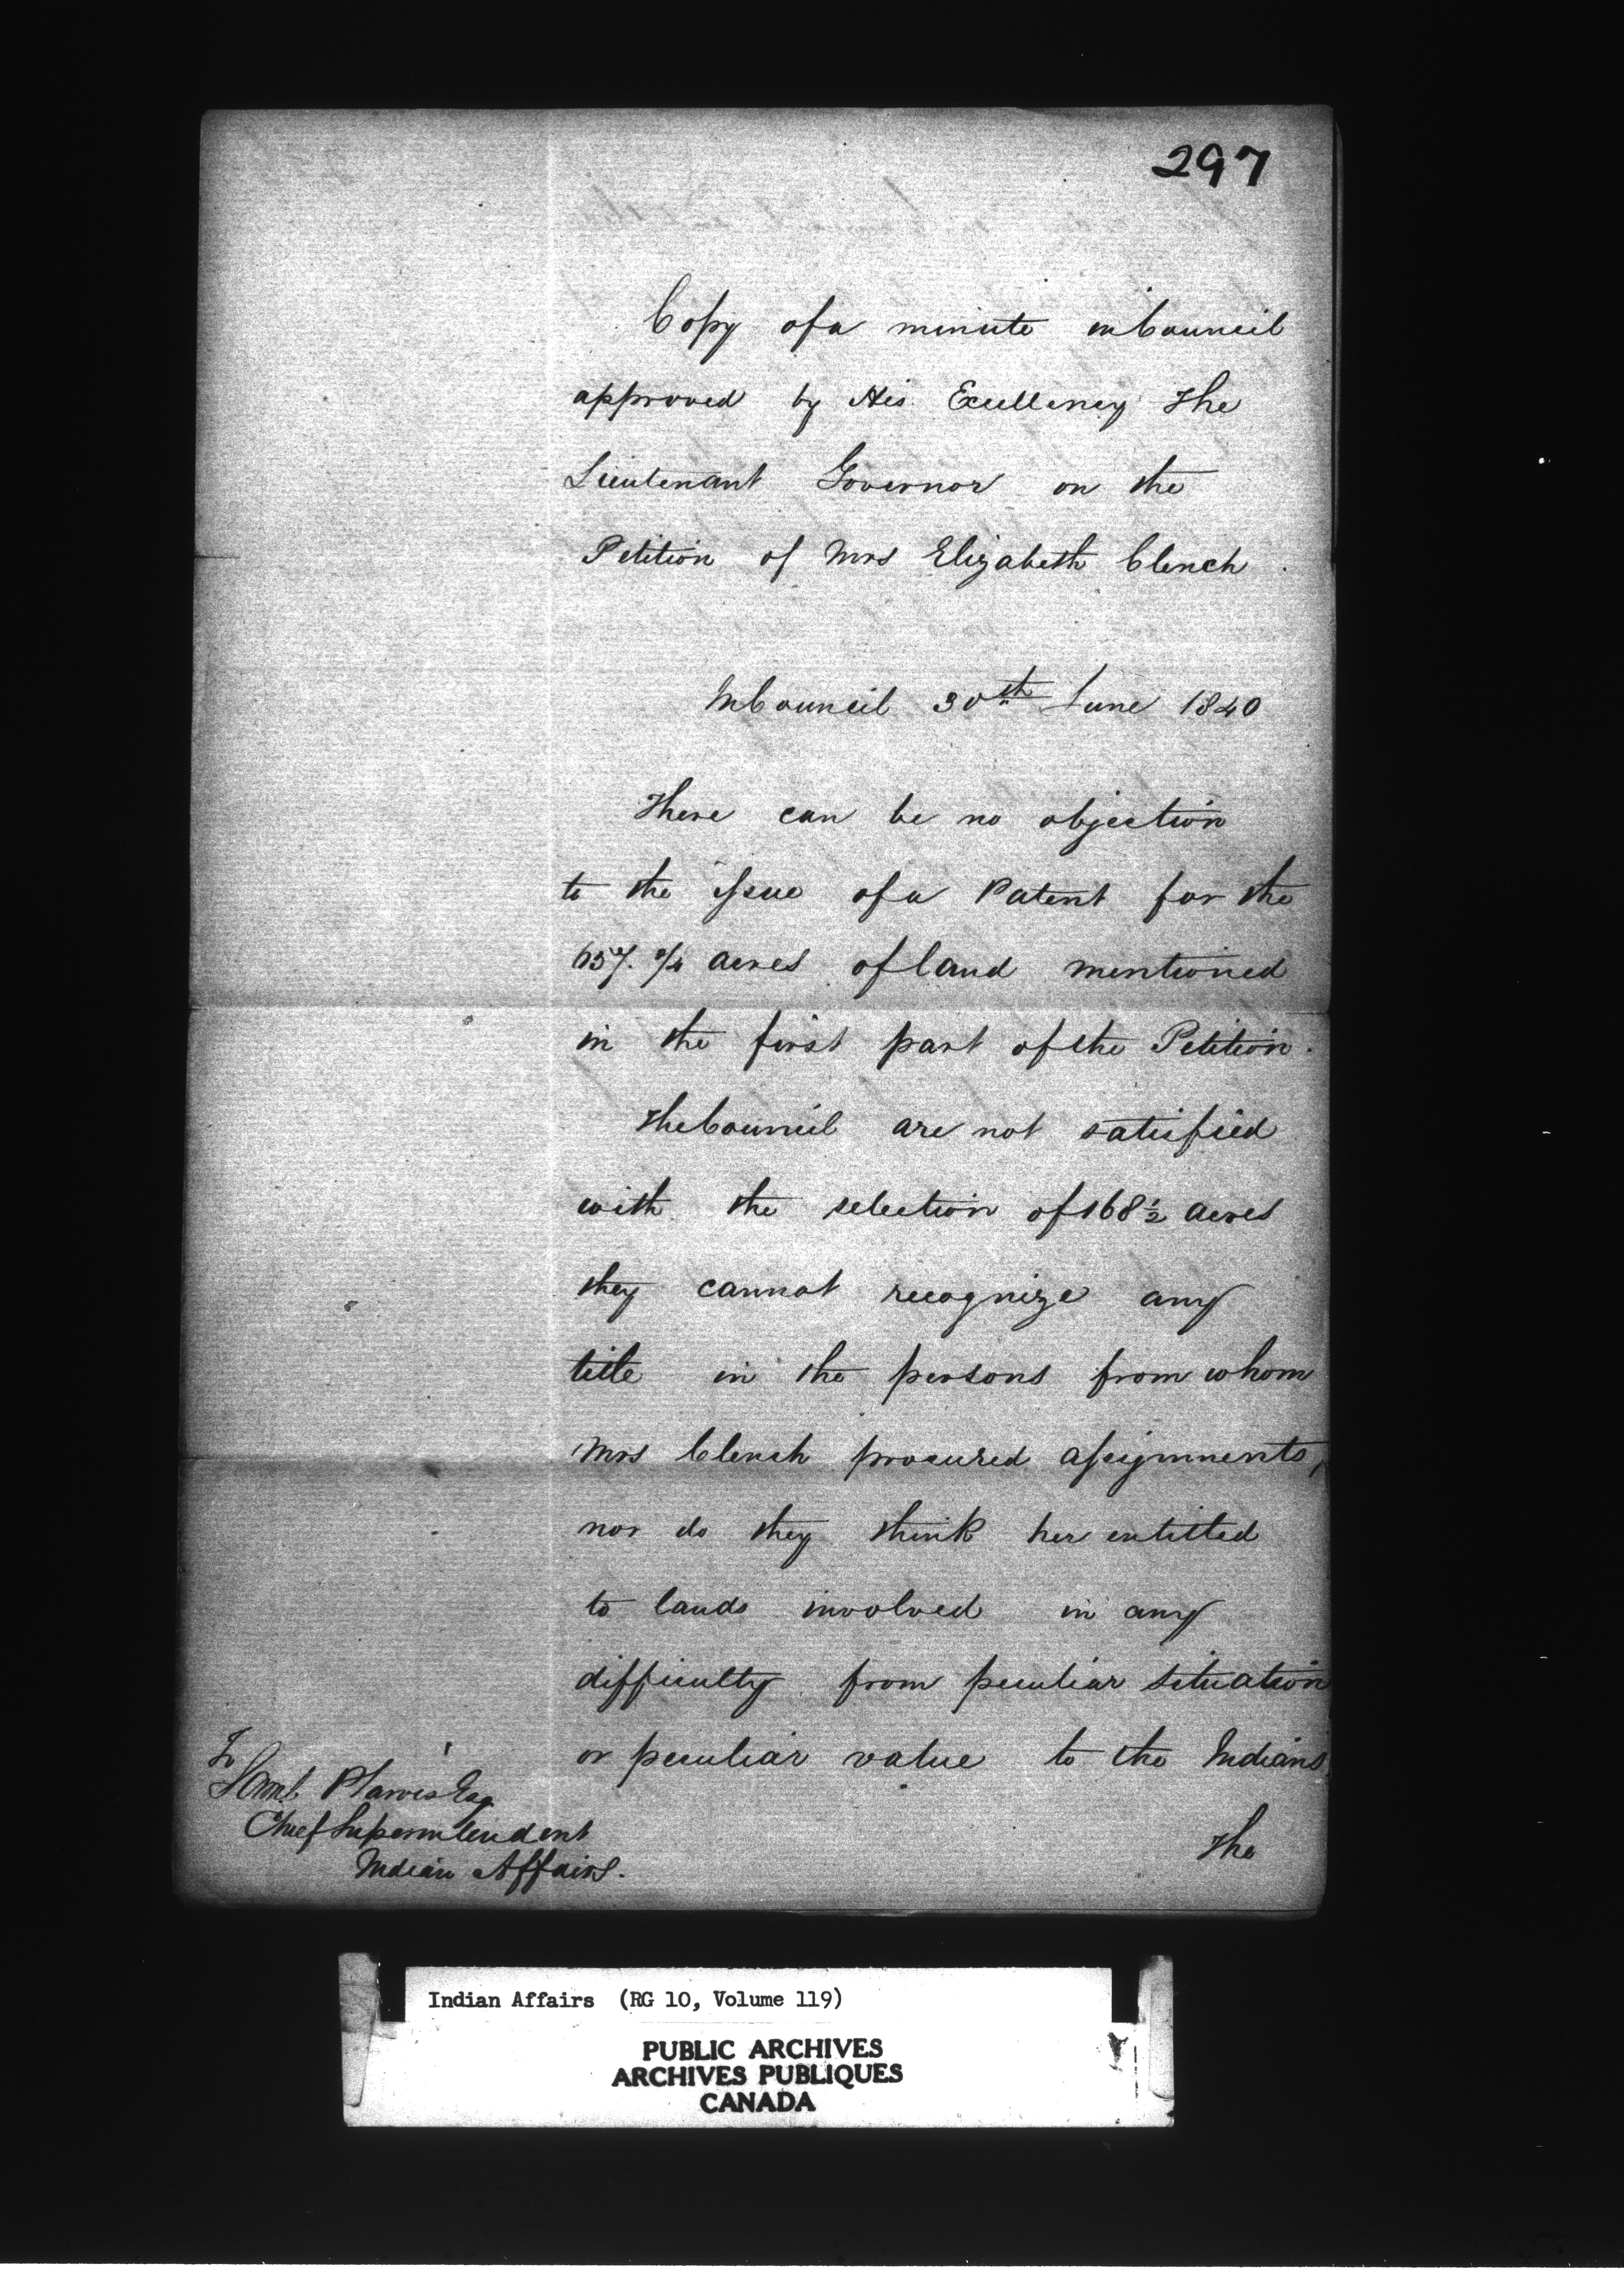 297
Copy of a minute in Council
approved by His Excellency The
Lieutenant Governor on the
Petition of Mrs Elizabeth Clench.
In Council 30th June 1840
There can be no objection
to the issue of a Patent for the
657. acres of land mentioned
in the first part of the Petition.
The Council are not satisfied
with the selection of 168 1/2 acres
they cannot recognize any
title in the persons from whom
Mrs Clench procured assignments,
nor do they think her entitled
to lands involved in any
difficulty from peculiar situation
or peculiar value to the Indians
The
To
Saml P Jarvis Esq
Chief Superintendent
Indian Affairs.
Indian Affairs (RG 10, Volume 119)
PUBLIC ARCHIVES
ARCHIVES PUBLIQUES
CANADA